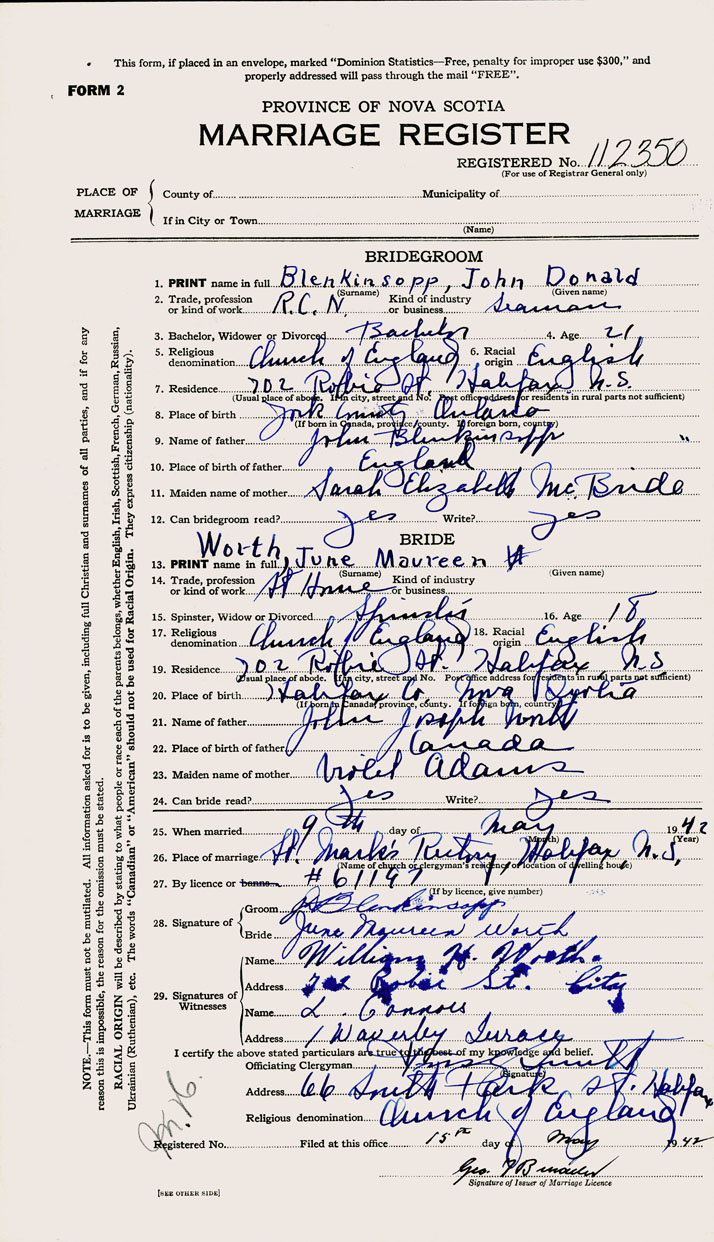 This form, if placed in an envelope, marked "Dominion Statistics—Free, penalty for improper use $300," and
properly addressed will pass through the mail "FREE".
FORM 2
PROVINCE OF NOVA SCOTIA
MARRIAGE REGISTER
REGISTERED No. 112350
(For use of Registrar General only)
PLACE OF MARRIAGE
County of Municipality of
If in City or Town
(Name)
BRIDEGROOM
1. PRINT name in full Blenkinsopp, John Donald
(Surname) (Given name)
2. Trade, profession or kind of work R.C.N. Kind of industry or business Seaman
3. Bachelor, Widower or Divorced Bachelor 4. Age 21
5. Religious denomination Church of England 6. Racial origin English
7. Residence 702 Robie St Halifax N.S.
(Usual place of abode. If in city, street and No. Post office address for residents in rural parts not sufficient)
8. Place of birth York County Ontario
(If born in Canada, province, county. If foreign born, country)
9. Name of father John Blenkinsopp "
10. Place of birth of father England
11. Maiden name of mother Sarah Elizabeth McBride
12. Can bridegroom read? yes Write? yes
BRIDE
13. PRINT name in full Worth, June Maureen
(Surname) (Given name)
14. Trade, profession or kind of work At Home Kind of industry or business
15. Spinster, Widow or Divorced Spinster 16. Age 18
17. Religious denomination Church of England 18. Racial origin English
19. Residence 702 Robie St. Halifax, N.S.
(Usual place of abode. If in city, street and No. Post office address for residents in rural parts not sufficient)
20. Place of birth Halifax Co Nova Scotia
(If born in Canada, province, county. If foreign born, country)
21. Name of father John Joseph Worth
22. Place of birth of father Canada
23. Maiden name of mother Violet Adams
24. Can bride read? yes Write? yes
25. When married 9th day of May 1942
(Month) (Year)
26. Place of marriage St. Mark's Rectory, Halifax, N.S.
(Name of church or clergyman's residence or location of dwelling house)
27. By licence or banns #61197
(If by licence, give number)
28. Signature of
Groom J D Blenkinsopp
Bride June Maureen Worth
29. Signatures of Witnesses
Name William H. Worth.
Address 702 Robie St. City
Name L. Connors
Address 1 Waverley Terrace
I certify the above stated particulars are true to the best of my knowledge and belief.
Officiating Clergyman
(Signature)
Address 66 South Park St. Halifax
Religious denomination Church of England
Registered No. Filed at this office 15th day of May 1942
Geo.
Signature of Issuer of Marriage Licence
[SEE OTHER SIDE]
NOTE.—This form must not be mutilated. All information asked for is to be given, including full Christian and surnames of all parties, and if for any
reason this is impossible, the reason for the omission must be stated.
RACIAL ORIGIN will be described by stating to what people or race each of the parents belongs, whether English, Irish, Scottish, French, German, Russian,
Ukrainian (Ruthenian), etc. The words "Canadian" or "American" should not be used for Racial Origin. They express citizenship (nationality).